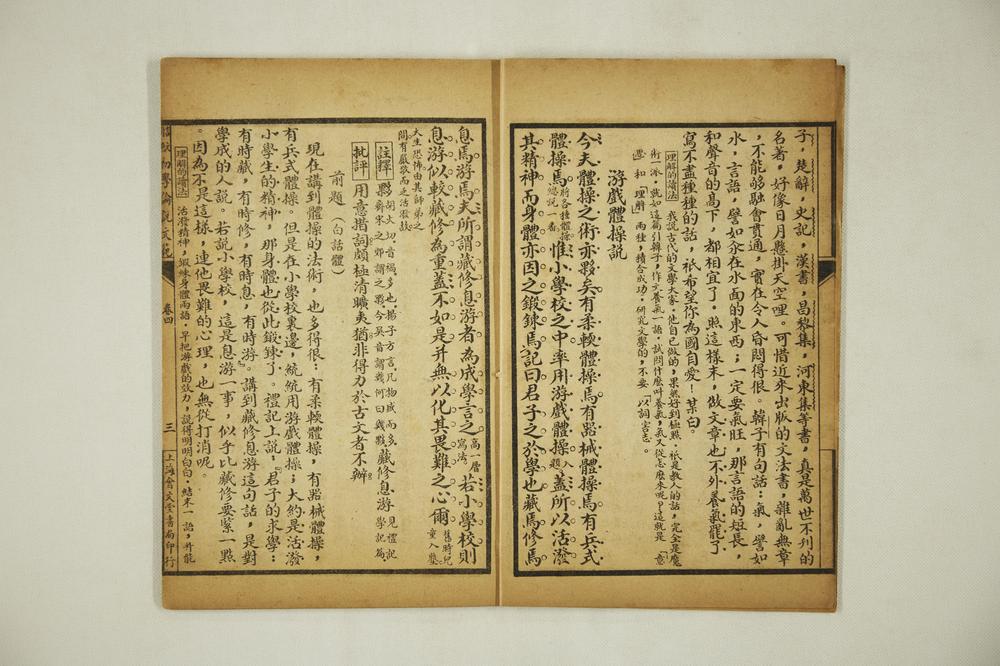 子，楚辭，史記，漢書，昌黎集，河東集等書，真是萬世不刊的
名著，好像日月懸掛天空哩。可惜近來出版的文法書，雜亂無章
，不能夠融會貫通，實在令人昏悶得很。韓子有句話：氣，譬如
水，言語，譬如汆在水面的東西；一定要氣旺，那言語的短長，
和聲音的高下，都相宜了。照這樣末，做文章也不外養氣罷了。
寫不盡種種的話，祇希望你為國自愛！某白。
理解的讀法 我說古代的文學大家，他自己做的，果然好到極點，祇是教人的話，完全是魔
術派，就如這篇引韓子，作文養氣一語，試問什麼叫養氣，氣又從怎麼來呢？這就是「意
』和「理解」兩種，積合成功，研究文學的，不要「以詞害志。
游戲體操說
今夫體操之術亦夥矣有柔軟體操焉有器械體操焉有兵式
體操焉將各種體操總說一番惟小學校之中率用游戲體操入題蓋所以活潑
其精神而身體亦因之鍛鍊焉記曰君子之於學也藏焉修焉
息焉游焉夫所謂藏修息游者為成學言之高一層寫法若小學校則
息游似較藏修為重蓋不如是并無以化其畏難之心爾舊時兒童入塾
大生恐怖由其師弟之間有嚴敬而無活潑故
註釋 夥胡火切，音禍，多也，揚子方言，凡物盛而多，齊宋之郊謂之夥，今吳音謂幾何曰幾夥藏修息游見禮記學記篇，
批評 用意措詞頗極清曠夷猶非得力於古文者不辦
前題（白話體）
現在講到體操的法術，也多得很：有柔軟體操，有器械體操，
有兵式體操。但是在小學校裏邊，統統用游戲體操；大約是活潑
小學生的精神，那身體也從此鍛鍊了。禮記上說：『君子的求學：
有時藏，有時修，有時息，有時游』。講到藏修息游這句話，是對
學成的人說。若說小學校，這是息游一事，似乎比藏修要緊一點
。因為不是這樣，連他畏難的心理，也無從打消呢。
理解的讀法 活潑精神，鍛鍊身體兩語，早把游戲的效力，說得明明白白，結末一語，并能
初學論說文範
卷四
三
上海會文堂書局印行